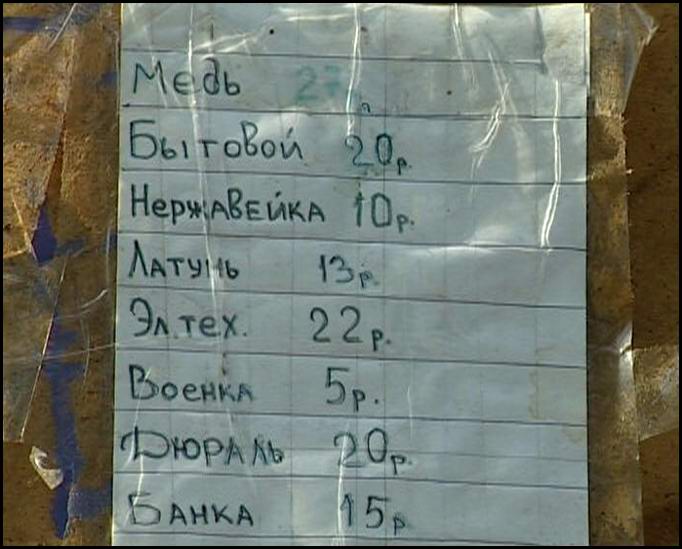 Медь
Бытовой 20р.
Нержавейка 10р.
Латунь 13р.
Эл.тех. 22р.
Военка 5р.
Дюраль 20р.
Банка 15р